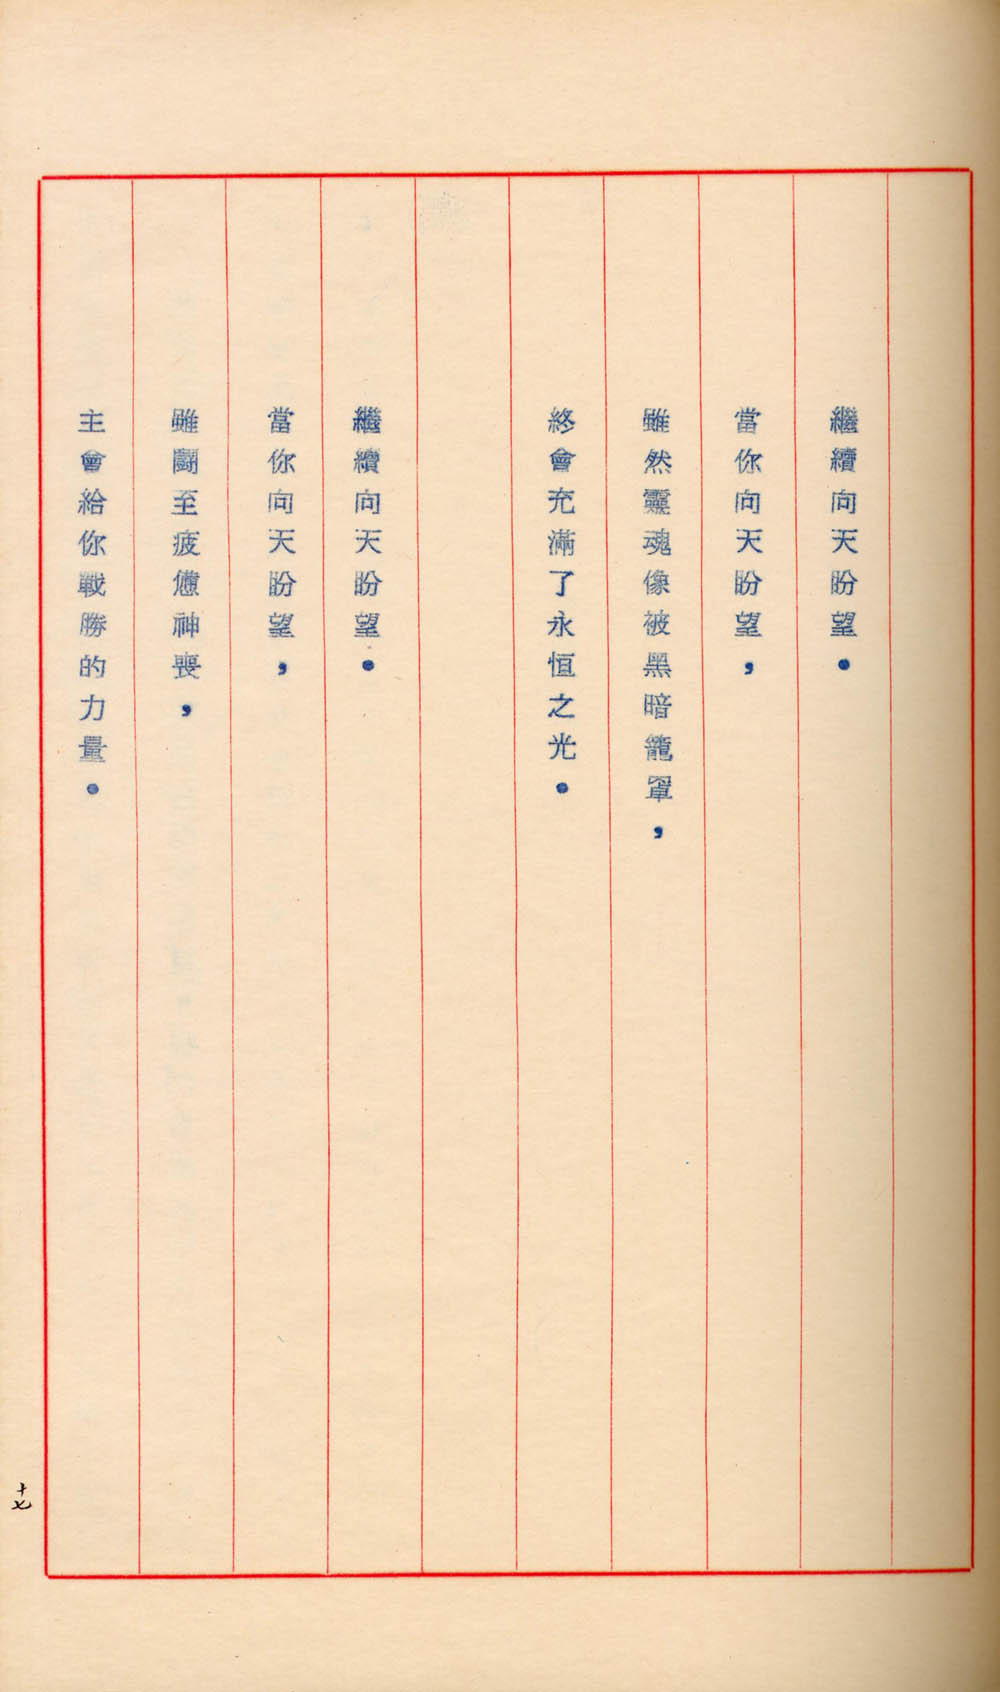 繼續向天盼望．
當你向天盼望，
雖然靈魂像被黑暗籠罩，
終會充滿了永恒之光．
繼續向天盼望．
當你向天盼望，
雖鬪至疲憊神喪，
主會給你戰勝的力量．
十七